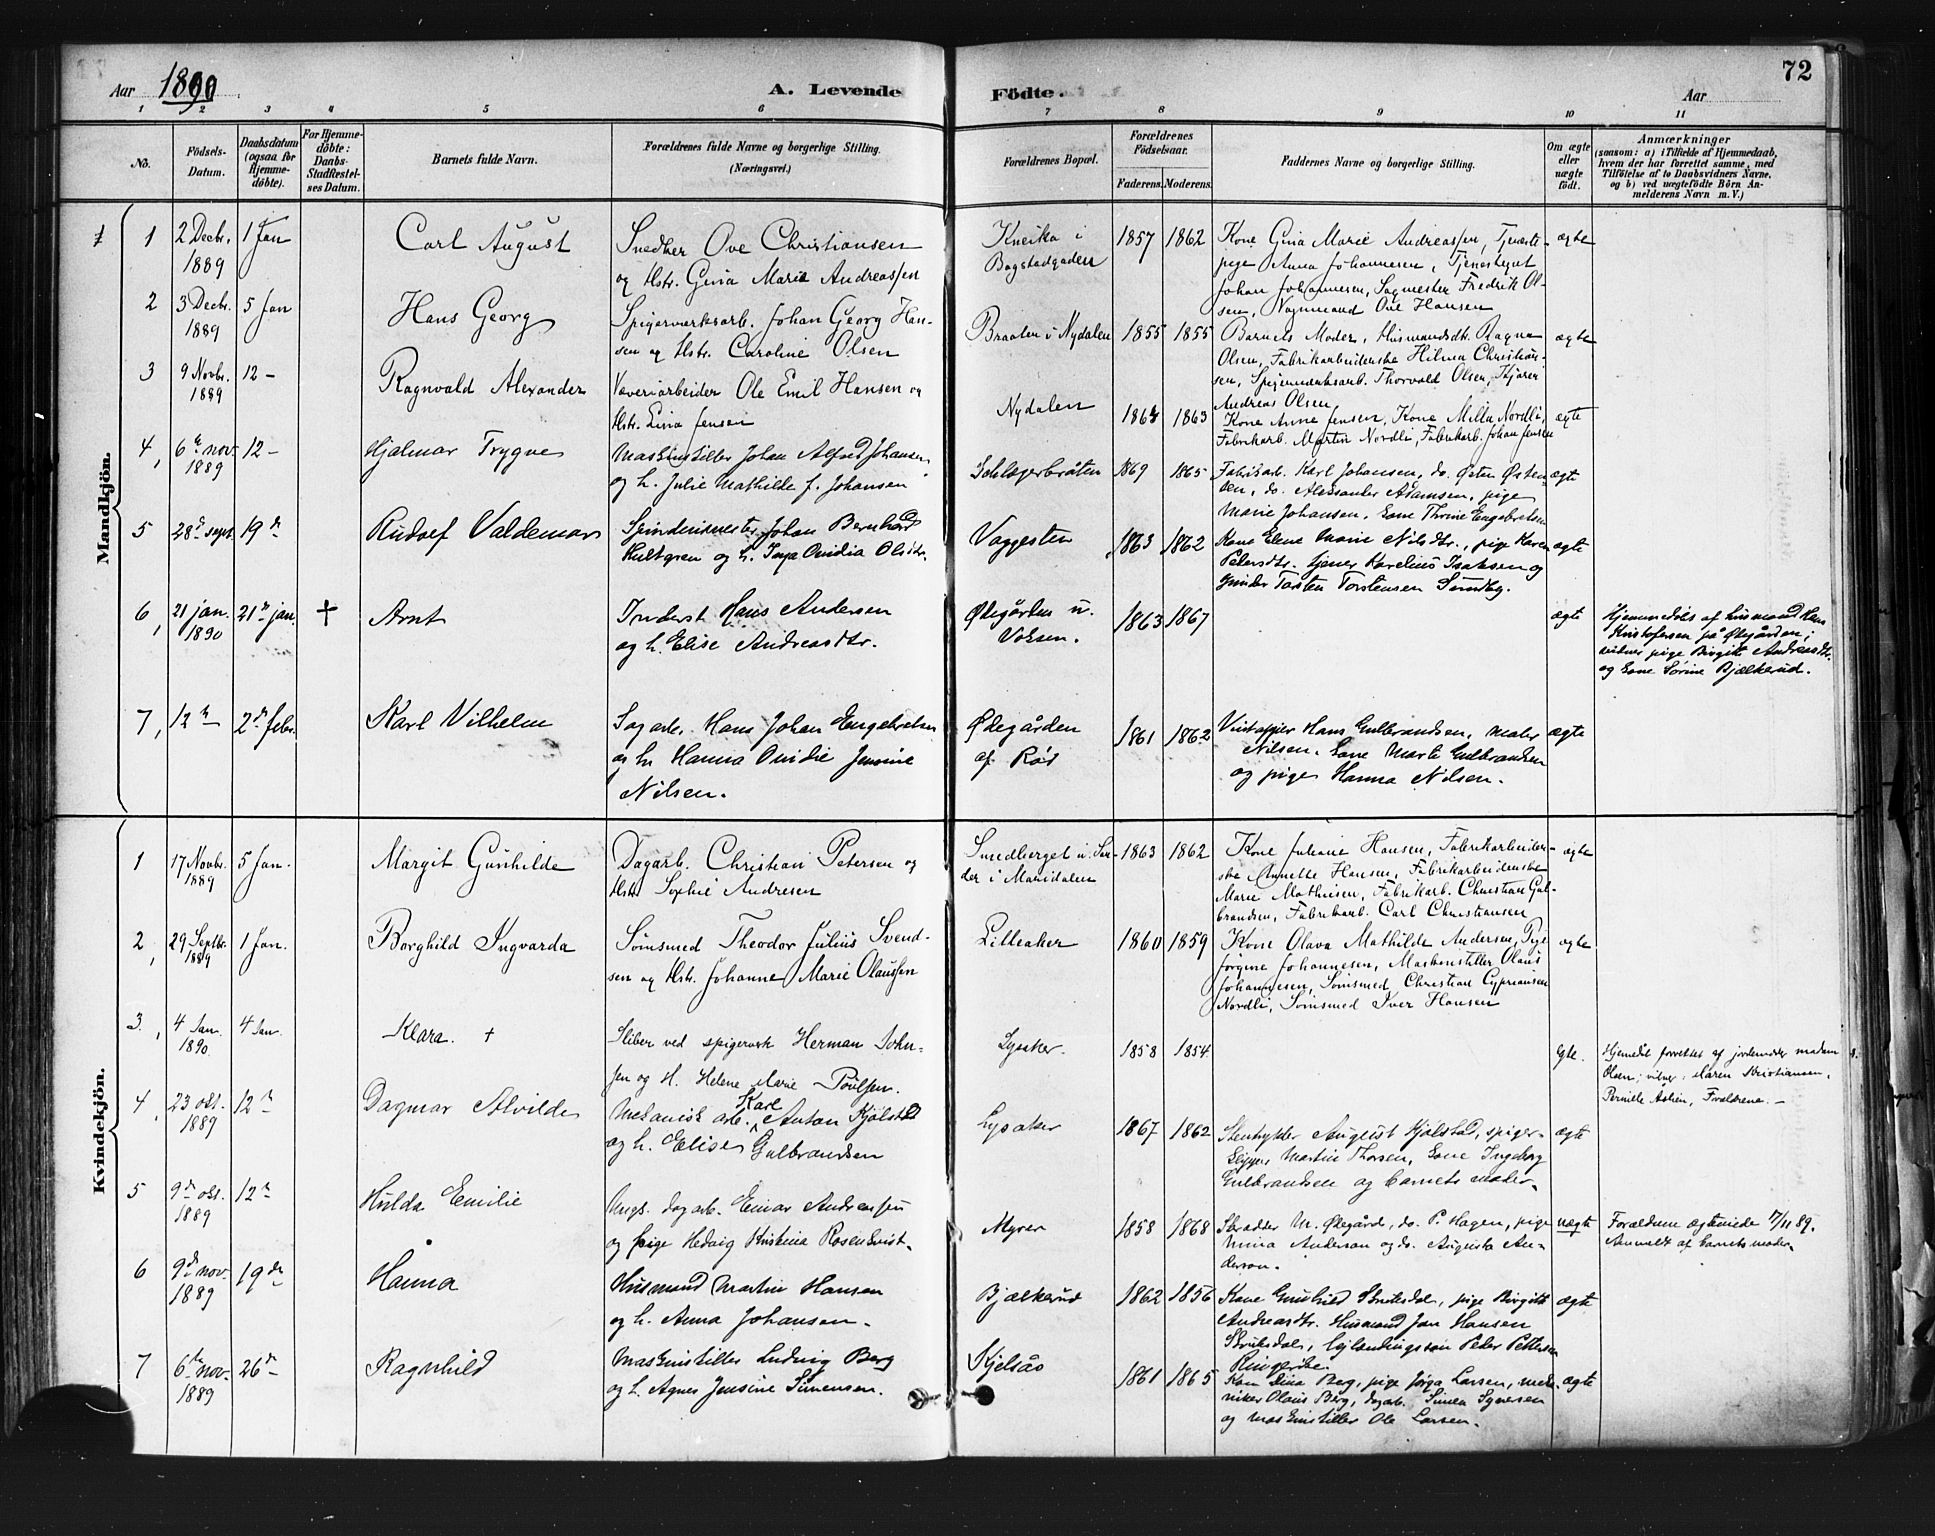 72
Aar 1890. A. Levende Födte. Aar
1 2 3 4 5 6 7 8 9 10 11
No.
Födsels-Datum.
Daabsdatum (ogsaa for Hjemmedöbte).
For Hjemmedöbte: Daabs-Stadfæstelses Datum.
Barnets fulde Navn.
Forældrenes fulde Navne og borgerlige Stilling. (Næringsvei.)
Forældrenes Bopæl.
Forældrenes Födselsaar.
Faderens. Moderens.
Faddernes Navne og borgerlige Stilling.
Om ægte eller uægte födt.
Anmærkninger
(saasom: a) i Tilfælde af Hjemmedaab, hvem der har forrettet samme, med Tilföielse af to Daabsvidners Navne, og b) ved uægtefödte Börn Anmelderens Navn m. V.)
Mandkjön.
1 2 Decbr. 1889 1 Jan Carl August
Snedker Ove Christiansen
og Hstr. Gina Marie Andreassen
Kneika i
Bogstadgaden
1857 1862
Kone Gina Marie Andreassen, Tjeneste-
pige Anna Johannesen, Tjenestegut
Johan Johannesen, Sagmester Fredrik Ol-
sen, Vognmand Ove Hansen
ægte
2 3 Decbr. 1889 5 Jan Hans Georg
Spigerværksarb. Johan Georg Han-
sen og Hstr. Caroline Olsen
Braaten i Nydalen
1855 1855
Barnets Moder, Husmandsdt. Ragna
Olsen, Fabrikarbeiderske Hilma Christian-
sen, Spigerværksarb. Thorvald Olsen,
Andreas Olsen
ægte
3 9 Novbr. 1889 12 – Ragnvald Alexander
Væveriarbeider Ole Emil Hansen og
Hstr. Lina Jensen
Nydalen
1864 1863
Kone Anne Jensen, Kone Milla Nordli,
Fabrikarb. Martin Nordli, Fabrikarb. Johan Jensen
ægte
4, 6te nov. 1889 12 – Hjalmar Trygve
Maskinstiller Johan Alfred Johansen
og h. Julie Mathilde f. Johansen
1869 1865
Fabrikarb. Karl Johansen, do. Østen Østen-
sen, do. Aleksander Adamsen, pige
Marie Johansen, kone Thrine Engebretsen
ægte
5 28de sept. 19de Rudolf Valdemar
Spinderimester Johan Bernhard
Hultgren og h. Inga Ovidia Olsdtr.
Vaggesten
1863 1862
Kone Elene Marie Nilsdtr., pige Karen
Petersdtr. tjener Karelius Isaksen og
Torsten Torstensen Sundby.
ægte
6, 21 jan. 1890 21de jan. † Arnt
Inderst Hans Andersen
og h. Elise Andreasdtr.
Ødegården u.
Voksen.
1863 1867
ægte
Hjemmedøbt af husmand Hans
Kristofersen på Ødegården;
vidner pige Birgitte Andreasdtr.
og kone Sørine Bjælkerud.
7, 12te 2de febr. Karl Vilhelm
Sagarb. Hans Johan Engebretsen
og h. Hanna Ovidie Jensine
Nilsen.
Ødegården
af Rød
1861 1862
Vintapper Hans Gulbrandsen, maler
Nilsen, kone Marte Gulbrandsen
og pige Hanna Nilsen.
ægte
Kvindekjön.
1 17 Novbr. 1889 5 Jan. Margit Gunhilde
Dagarb. Christian Petersen og
Hstr Sophie Andresen
Smedberget u. San-
der i Maridalen
1863 1862
Kone Juliane Hansen, Fabrikarbeider-
ske Annette Hansen, Fabrikarbeiderske
Marie Mathisen, Fabrikarb. Christian Gul-
brandsen, Fabrikarb. Carl Christiansen
ægte
2, 29 Septbr. 1889 1 Jan. Borghild Ingvarda
Sømsmed Theodor Julius Svend-
sen og Hstr. Johanne Marie Olaussen
Lilleaker
1860 1859
Kone Olava Mathilde Andersen, Pige
Jørgine Johannesen, Maskinstiller Olaus
Johannesen, Sømsmed Christian Cypriansen
Nordli, Sømsmed Iver Hansen
ægte
3, 4 Jan. 1890 4 Jan. Klara. +
Sliber ved spigerverk Herman John-
sen og H. Helene Marie Poulsen.
Lysaker.
1858 1854
Ægte.
Hjemedøbt forrettet af jordemoder madam
Olsen; vidner: Maren Kristiansen,
Pernille Asken, Forældrene. –
4, 23 okt. 1889 12te Dagmar Alvilde
Mekanisk arb. Karl Anton Kjølstad
og h. Elise Gulbrandsen
Lysaker
1867 1862
Stenhugger August Kjølstad, spiger-
klipper Martin Thorsen, kone Ingeborg
Gulbrandsen og barnets moder.
ægte
5 9de okt. 1889 12te Hulda Emilie
Ungk. dagarb. Einar Andreassen
og pige Hedvig Kristina Rosenkvist.
Myrer
1858 1868
Skrædder M. Ødegård, do. P. Hagen, pige
Mina Anderson og do. Augusta An-
derson.
uægte
Forældrene ægteviede 7/11 89.
Anmeldt af barnets moder.
6 9de nov. 1889 19de Hanna
Husmand Martin Hansen
og h. Anna Johansen.
Bjælkerud
1862 1856
Kone Gunhild Skriksdal, pige Birgitte
Andreasdtr. Husmand Jan Hansen
Skriksdal, leilændingssøn Peter Pettersen
Ringerike.
ægte
7 6te nov. 1889 26de Ragnhild
Maskinstiller Ludvig Berg
og h. Agnes Jensine Simensen.
Kjelsås
1861 1865
Kone Dina Berg, pige Jørga Larsen, meka-
niker Olaus Berg, dagarb. Simen Syversen
og maskinstiller Ole Larsen.
ægte